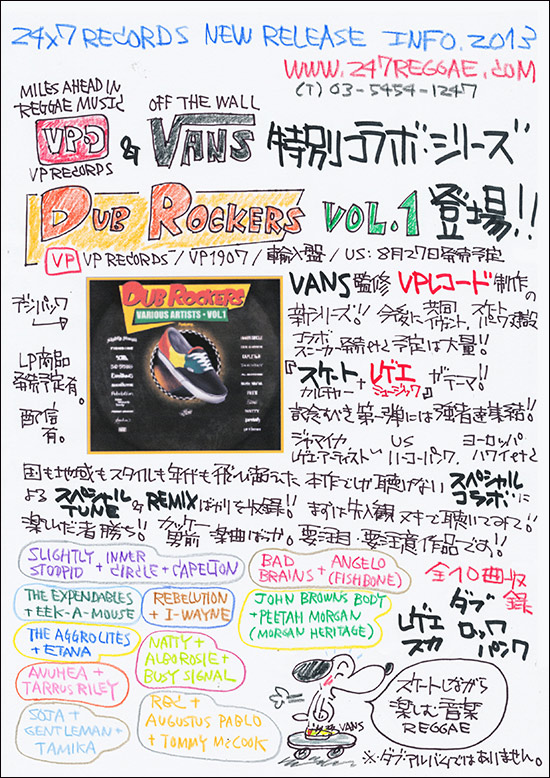 24x7 RECORDS NEW RELEASE INFO. 2013
WWW.247REGGAE.COM
(T) 03-5454-1247
MILES AHEAD IN
REGGAE MUSIC
VP
VP RECORDS
&
OFF THE WALL
VANS
特別コラボ・シリーズ
DUB ROCKERS VOL.1 登場!!
VP VP RECORDS / VP1907 / 輸入盤 / US: 8月27日発売予定
デジパック
LP商品
発売予定有。
配信
有。
DUB ROCKERS
VARIOUS ARTISTS · VOL.1
VANS監修 VPレコード制作の
新シリーズ!! 今後に共同イヴェント、スケートパーク建設
コラボスニーカー発売など予定は大量!!
『スケートカルチャー + レゲエミュージック』がテーマ!!
記念すべき第一弾には強者達集結!!
ジャマイカ US ヨーロッパ
レゲエ・アーティスト ハードコアパンク、ハワイなど
国も地域もスタイルも年代も飛び越えた 本作でしか聴けない スペシャルコラボに
よる スペシャルTUNE & REMIXばかりを収録!! まずは先入観ヌキで聴いてみて!!
楽しんだ者勝ち!! カッケー男前楽曲ばっか。要注目・要注意作品です!!
SLIGHTLY STOOPID + INNER CIRCLE + CAPELTON
BAD BRAINS + ANGELO (FISHBONE)
THE EXPENDABLES
+ EEK-A-MOUSE
REBELUTION
+ I-WAYNE
JOHN BROWN'S BODY
+ PEETAH MORGAN
(MORGAN HERITAGE)
全10曲収録
THE AGGROLITES
+ ETANA
NATTY +
ALBOROSIE +
BUSY SIGNAL
レゲエ
スカ
ダブ
ロック
パンク
ANUHEA +
TARRUS RILEY
SOJA +
GENTLEMAN +
TAMIKA
R&C +
AUGUSTUS PABLO
+ TOMMY McCOOK
VANS
スケートしながら
楽しむ音楽
REGGAE
※ダブ・アルバムではありません。